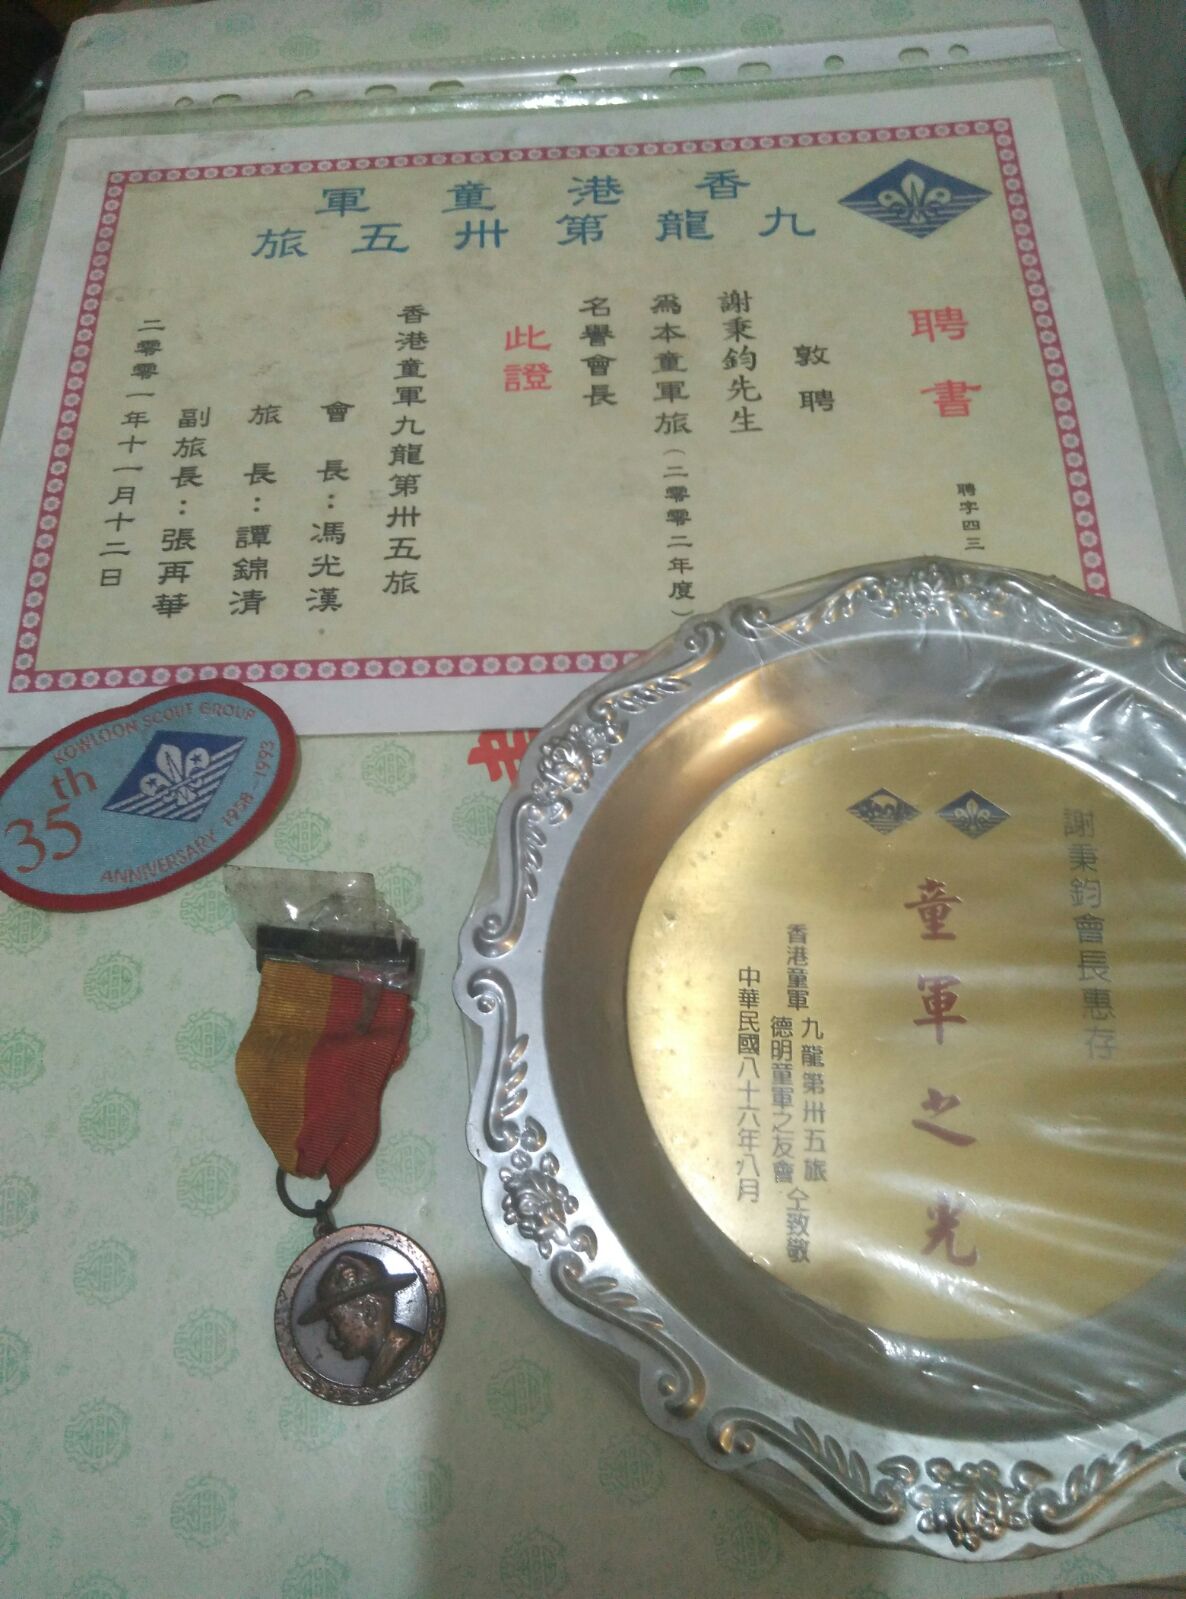 香港童軍
九龍第卅五旅
聘書
聘字四三
敦聘
謝秉鈞先生
為本童軍旅(二零零二年度)
名譽會長
此證
香港童軍九龍第卅五旅
會長：馮光漢
旅長：譚錦清
副旅長：張再華
二零零一年十一月十二日
KOWLOON SCOUT GROUP
35th
ANNIVERSARY 1958-1993
謝秉鈞會長惠存
童軍之光
香港童軍 九龍第卅五旅
德明童軍之友會 仝致敬
中華民國八十六年八月